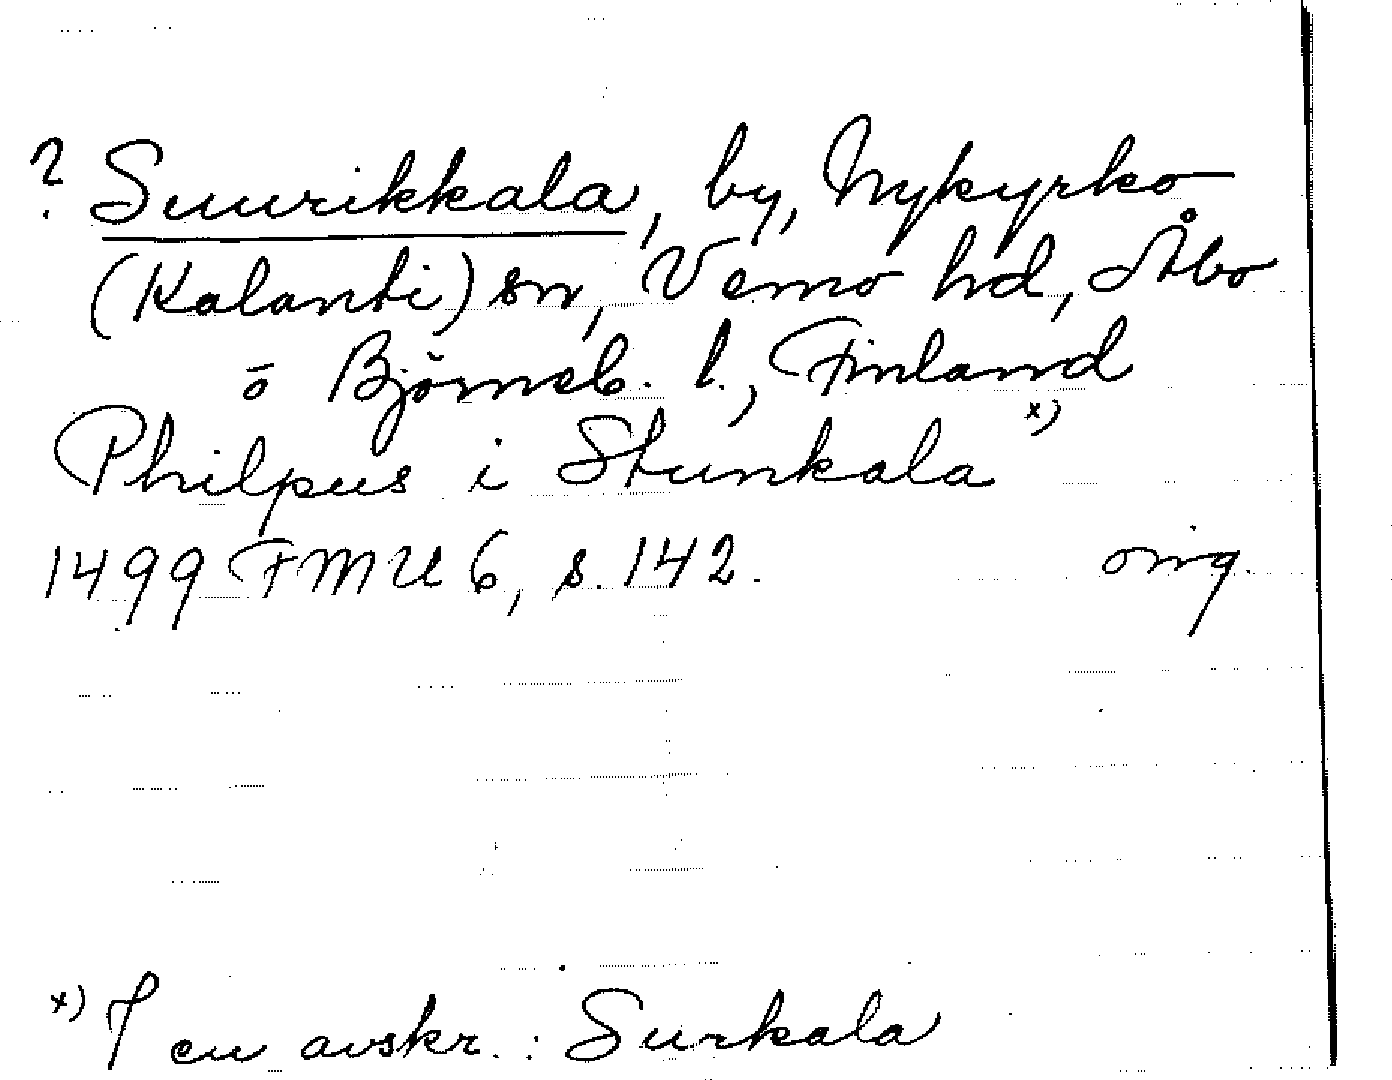 ? Suurikkala, by, Nykyrko
(Kalanti) sn, Vemo hd, Åbo
o Björneb. l., Finland
Philpus i Stunkala x)
1499 FMU 6, s. 142. orig.
x) I en avskr. : Surkala